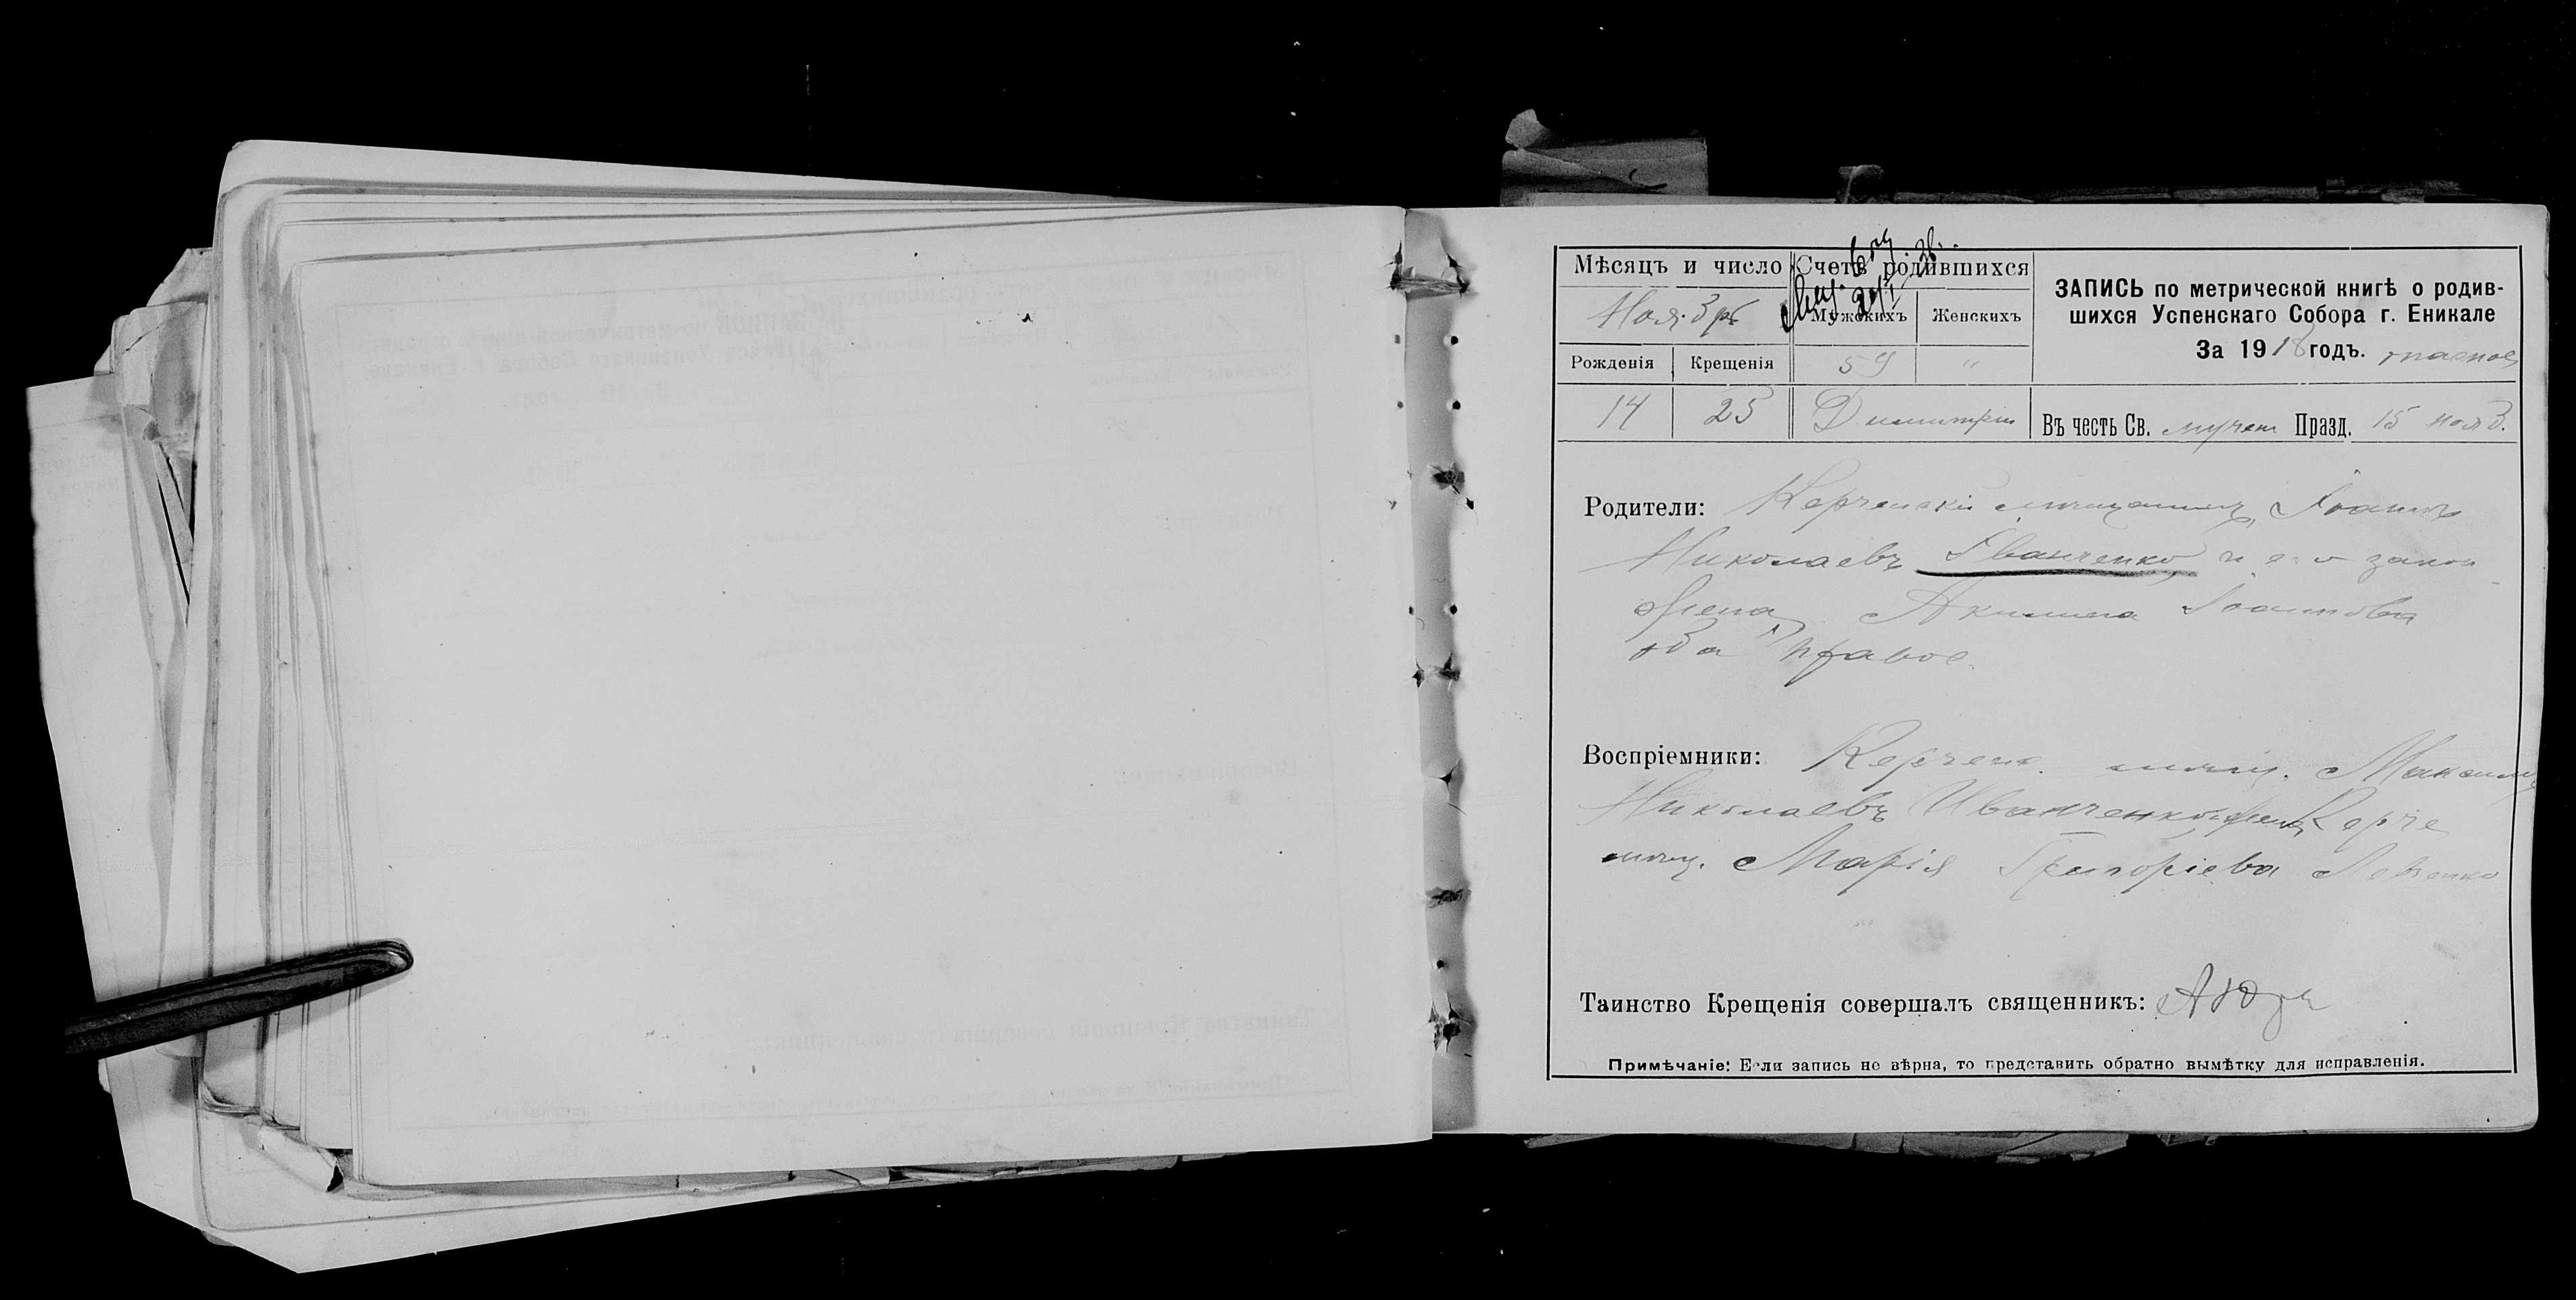 Мѣсяцъ и число
Счетъ родившихся
Ноябрь
Мужскихъ
Женскихъ
Рожденія
Крещенія
59
"
14
25
Димитрій
ЗАПИСЬ по метрической книгѣ о родив-
шихся Успенскаго Собора г. Еникале
За 1918 годъ.
Въ честь Св. мучен Празд. 15 нояб.
Родители: Керченскій мѣщанинъ Іоаннъ
Николаевъ Иванченко и его закон
жена Акилина Іоаннова
оба правос.
Воспріемники: Керченс. мѣщ. Максимъ
Николаевъ Иванченко и жена Керче
мѣщ. Марія Григоріева
Таинство Крещенія совершалъ священникъ:
Примѣчаніе: Если запись не вѣрна, то представить обратно вымѣтку для исправленія.